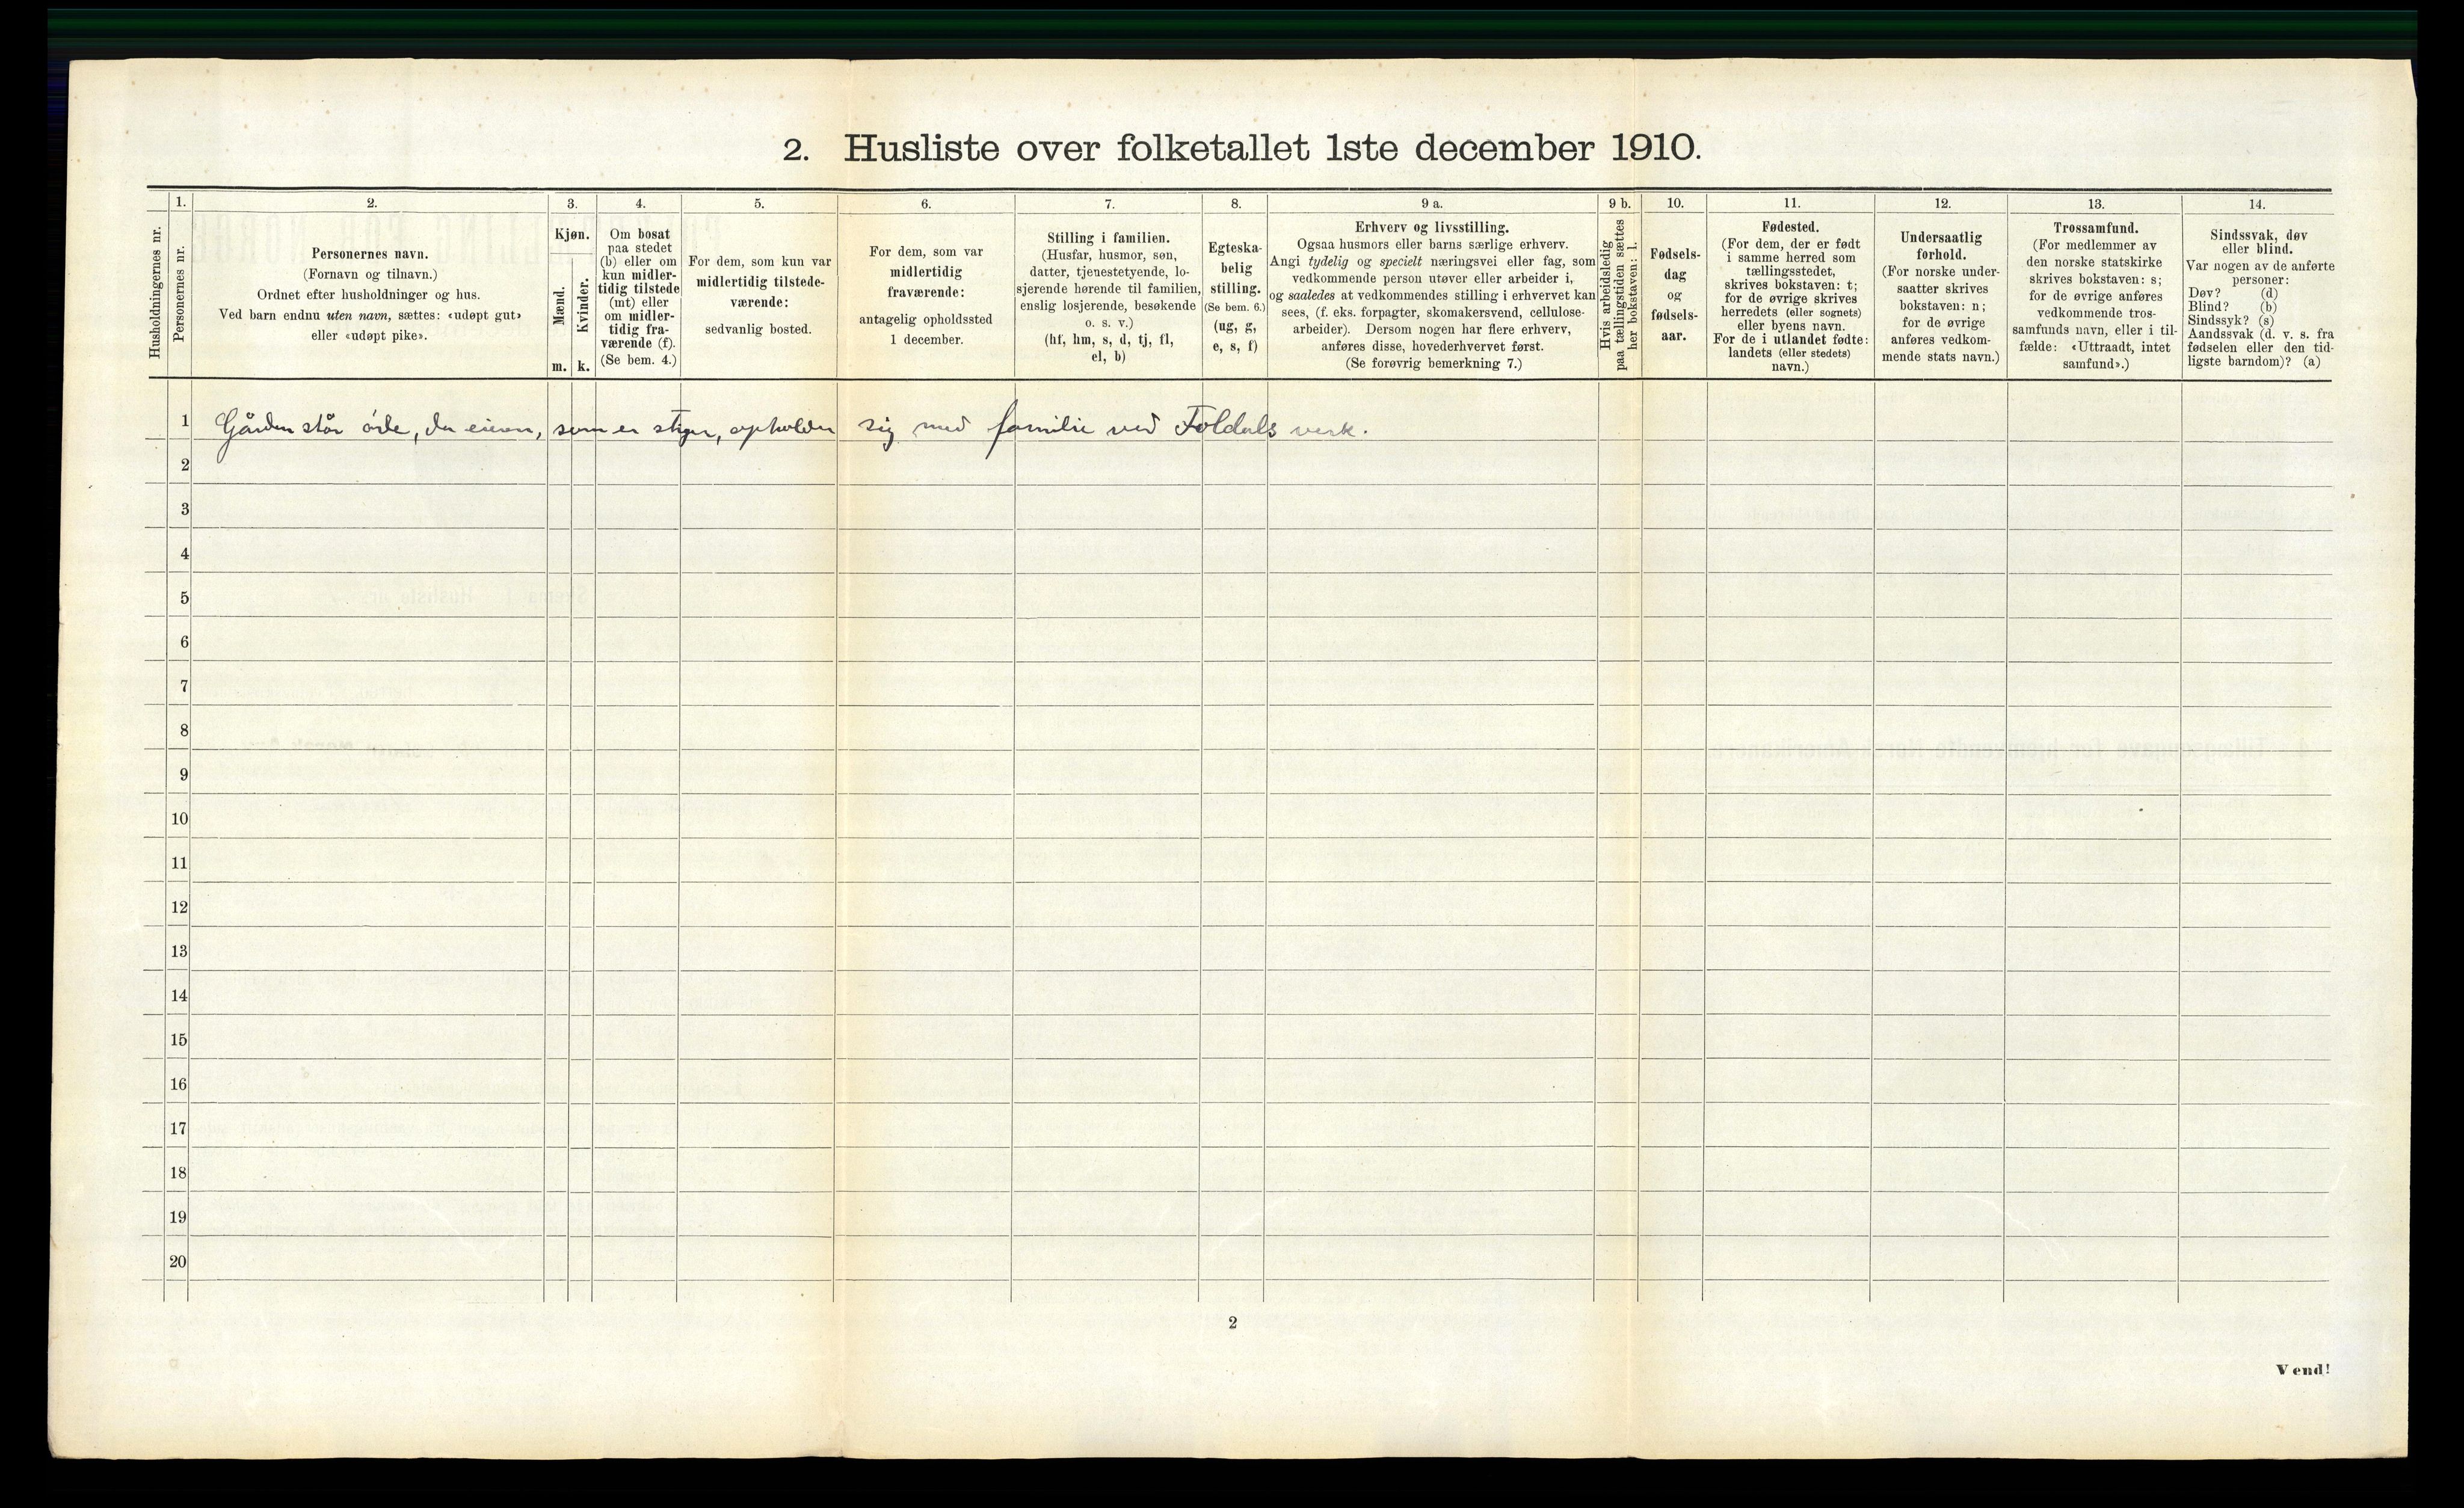 2. Husliste over folketallet 1ste december 1910.
Husholdningernes nr.
1.
Personernes nr.
2.
Personernes navn.
(Fornavn og tilnavn.)
Ordnet efter husholdninger og hus.
Ved barn endnu uten navn, sættes: «udøpt gut»
eller «udøpt pike».
3.
Kjøn.
Mænd.
Kvinder.
m. k.
4.
Om bosat
paa stedet
(b) eller om
kun midler-
tidig tilstede
(mt) eller
om midler-
tidig fra-
værende (f).
(Se bem. 4.)
5.
For dem, som kun var
midlertidig tilstede-
værende:
sedvanlig bosted.
6.
For dem, som var
midlertidig
fraværende:
antagelig opholdssted
1 december.
7.
Stilling i familien.
(Husfar, husmor, søn,
datter, tjenestetyende, lo-
sjerende hørende til familien,
enslig losjerende, besøkende
o. s. v.)
(hf, hm, s, d, tj, fl,
el, b)
8.
Egteska-
belig
stilling.
(Se bem. 6.)
(ug, g,
e, s, f)
9 a.
Erhverv og livsstilling.
Ogsaa husmors eller barns særlige erhverv.
Angi tydelig og specielt næringsvei eller fag, som
vedkommende person utøver eller arbeider i,
og saaledes at vedkommendes stilling i erhvervet kan
sees, (f. eks. forpagter, skomakersvend, cellulose-
arbeider). Dersom nogen har flere erhverv,
anføres disse, hovederhvervet først.
(Se forøvrig bemerkning 7.)
9 b.
Hvis arbeidsledig
paa tællingstiden sættes
her bokstaven: l.
10.
Fødsels-
dag
og
fødsels-
aar.
11.
Fødested.
(For dem, der er født
i samme herred som
tællingsstedet,
skrives bokstaven: t;
for de øvrige skrives
herredets (eller sognets)
eller byens navn.
For de i utlandet fødte:
landets (eller stedets)
navn.)
12.
Undersaatlig
forhold.
(For norske under-
saatter skrives
bokstaven: n;
for de øvrige
anføres vedkom-
mende stats navn.)
13.
Trossamfund.
(For medlemmer av
den norske statskirke
skrives bokstaven: s;
for de øvrige anføres
vedkommende tros-
samfunds navn, eller i til-
fælde: «Uttraadt, intet
samfund».)
14.
Sindssvak, døv
eller blind.
Var nogen av de anførte
personer:
Døv? (d)
Blind? (b)
Sindssyk? (s)
Aandssvak (d. v. s. fra
fødselen eller den tid-
ligste barndom)? (a)
1 Gården står øde, da eieren, som er stiger, opholder sig med familie ved Foldals verk.
2
3
4
5
6
7
8
9
10
11
12
13
14
15
16
17
18
19
20
2
Vend!